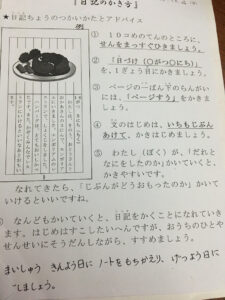 『日記のかき方』
★日記ちょうのつかいかたとアドバイス
① １０コめのてんのところに、
せんをまっすぐひきましょう。
② 「日づけ（○がつ○にち）」
を、１ぎょう目にかきましょう。
③ ページの一ばん下のらんがい
には、「ページすう」をかきま
しょう。
④ 文のはじめは、いちもじぶん
あけて、かきはじめましょう。
⑤ わたし（ぼく）が、「だれと
なにをしたのか」かいていくと、
かきやすいです。
なれてきたら、「じぶんがどうおもったのか」かいて
いけるといいですね。
なんどもかいていくと、日記をかくことになれていき
ます。はじめはすこしたいへんですが、おうちのひとや
せんせいにそうだんしながら、すすめましょう。
まいしゅう きんよう日に ノートをもちかえり、げつよう日に
だしましょう。